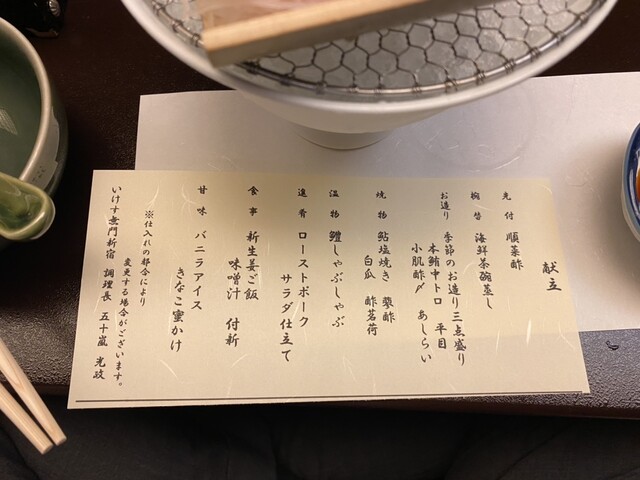 献立
先付 順菜酢
椀替 海鮮茶碗蒸し
お造り 季節のお造り三点盛り
本鮪中トロ 平目
小肌酢〆 あしらい
焼物 鮎塩焼き 蓼酢
白瓜 酢茗荷
温物 鱧しゃぶしゃぶ
進肴 ローストポーク
サラダ仕立て
食事 新生姜ご飯
味噌汁 付新
甘味 バニラアイス
きなこ蜜かけ
※仕入れの都合により
変更する場合がございます。
いけす無門新宿 調理長 五十嵐 光政